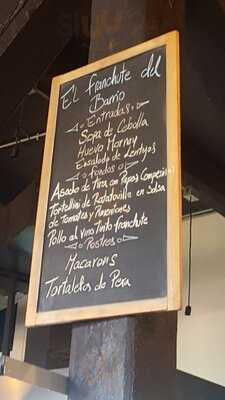 El Franchute del
Barrio
Entradas
Sopa de Cebolla
Huevo Mornay
Ensalada de Lentejas
Fondos
Asado de Tira con Papas Campesinas
Tortellini de Ratatouille en Salsa
de Tomates y Pimentones
Pollo al Vino Tinto franchute
Postres
Macarons
Tortaletas de Pera